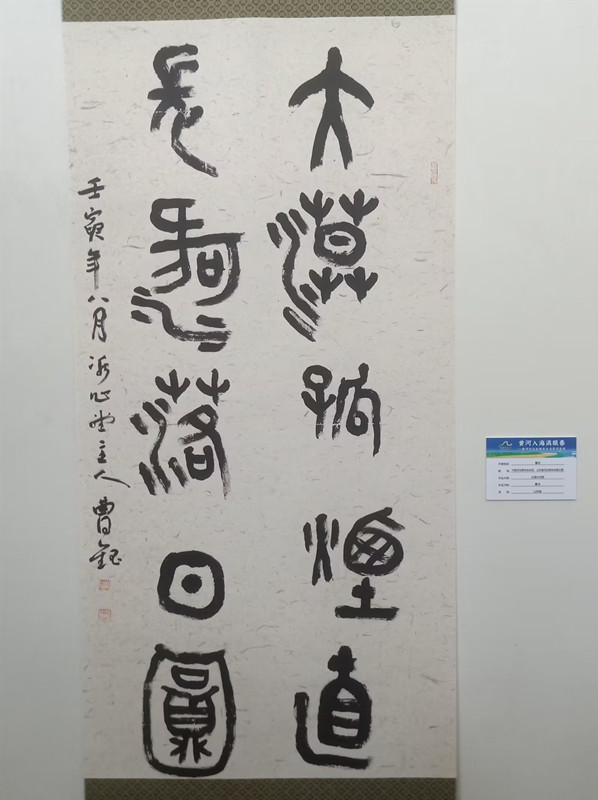 大漠孤煙直
長河落日圓
壬寅年八月心堂主人曹鈺
黄河入海